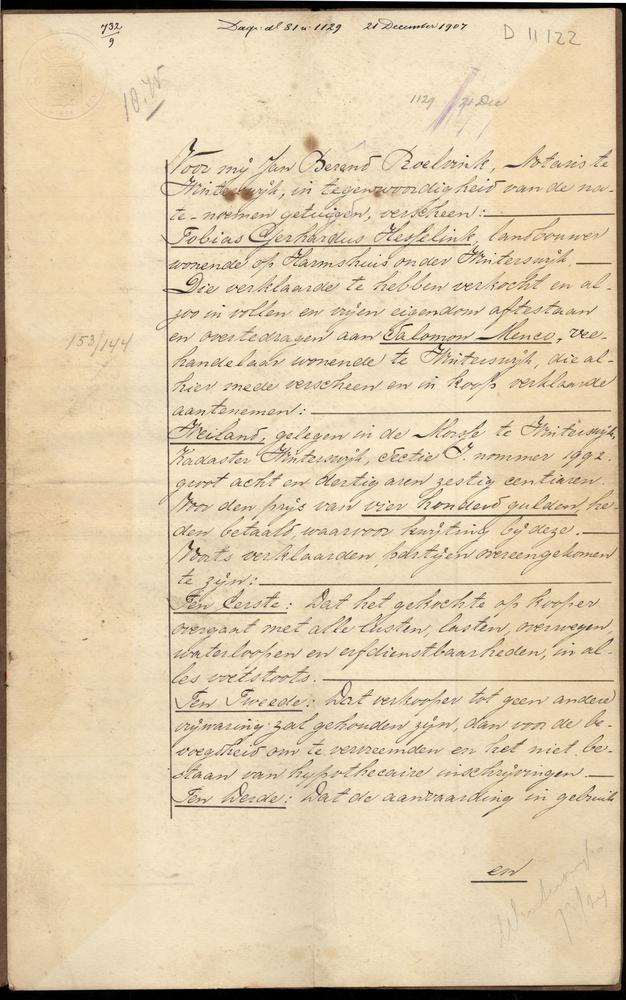 732
9
Dagr. dl 81 n. 1129 21 December 1907
D 11122
1129 21 Dec
Voor mij Jan Berend Roelvink, Notaris te
Winterswijk, in tegenwoordigheid van de na-
te-noemen getuigen, verscheen:
Tobias Gerhardus Hesselink, landbouwer
wonende op Harmshuis onder Winterswijk.
Die verklaarde te hebben verkocht en al-
zoo in vollen en vrijen eigendom aftestaan
en overtedragen aan Salomon Menco, vee-
153/144
handelaar wonende te Winterswijk, die al-
hier mede verscheen en in koop verklaarde
aantenemen:
Weiland, gelegen in de Morsse te Winterswijk,
Kadaster Winterswijk, Sectie I. nommer 1992.
groot acht en dertig aren zestig centiaren.
Voor den prijs van vier honderd gulden, he-
den betaald, waarvoor kwijting bij deze.
Voorts verklaarden partijen overeengekomen
te zijn:
Ten Eerste: Dat het gekochte op kooper
overgaat met alle lusten, lasten, overwegen,
waterloopen en erfdienstbaarheden, in al-
les voetstoots.
Ten Tweede: Dat verkooper tot geen andere
vrijwaring zal gehouden zijn, dan voor de be-
voegdheid om te vervreemden en het niet be-
staan van hypothecaire inschrijvingen
Ten Derde: Dat de aanvaarding in gebruik
en